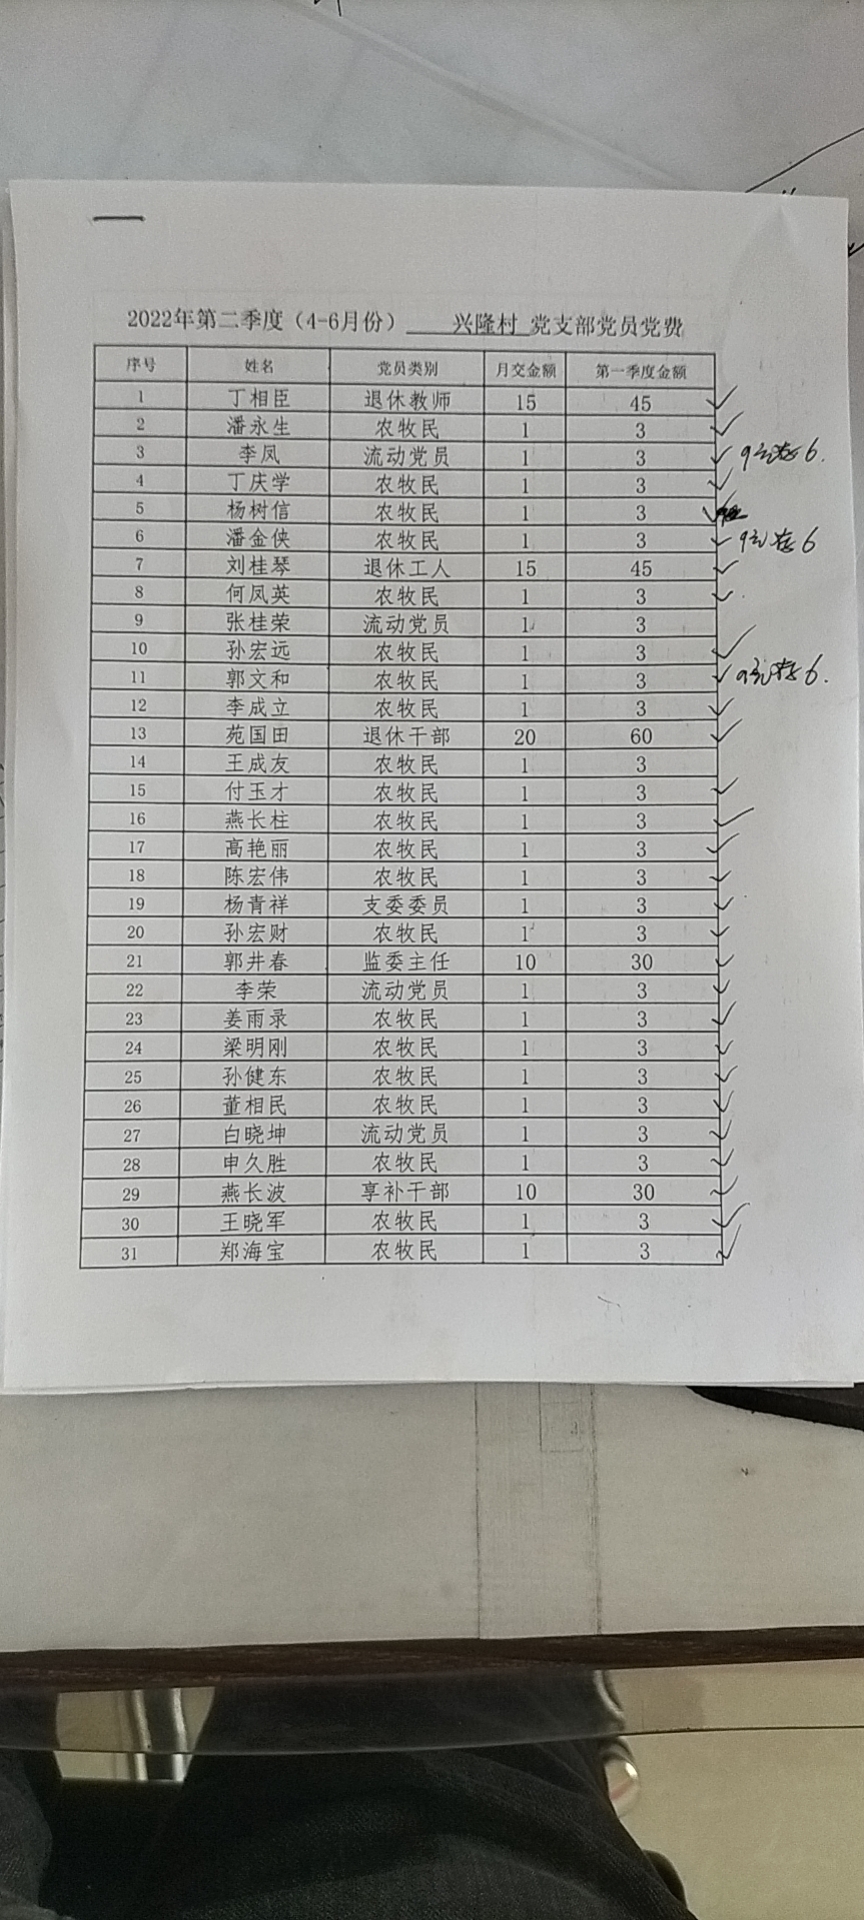 2022年第二季度（4-6月份） 兴隆村 党支部党员党费
序号 姓名 党员类别 月交金额 第一季度金额
1 丁相臣 退休教师 15 45 ✓
2 潘永生 农牧民 1 3 ✓
3 李凤 流动党员 1 3 ✓ 9元存6.
4 丁庆学 农牧民 1 3 ✓
5 杨树信 农牧民 1 3 ✓
6 潘金侠 农牧民 1 3 ✓ 9元存6
7 刘桂琴 退休工人 15 45 ✓
8 何凤英 农牧民 1 3 ✓
9 张桂荣 流动党员 1 3
10 孙宏远 农牧民 1 3 ✓
11 郭文和 农牧民 1 3 ✓ 9元存6.
12 李成立 农牧民 1 3 ✓
13 苑国田 退休干部 20 60 ✓
14 王成友 农牧民 1 3
15 付玉才 农牧民 1 3 ✓
16 燕长柱 农牧民 1 3 ✓
17 高艳丽 农牧民 1 3 ✓
18 陈宏伟 农牧民 1 3 ✓
19 杨青祥 支委委员 1 3 ✓
20 孙宏财 农牧民 1 3 ✓
21 郭井春 监委主任 10 30 ✓
22 李荣 流动党员 1 3 ✓
23 姜雨录 农牧民 1 3 ✓
24 梁明刚 农牧民 1 3 ✓
25 孙健东 农牧民 1 3 ✓
26 董相民 农牧民 1 3 ✓
27 白晓坤 流动党员 1 3 ✓
28 申久胜 农牧民 1 3 ✓
29 燕长波 享补干部 10 30 ✓
30 王晓军 农牧民 1 3 ✓
31 郑海宝 农牧民 1 3 ✓